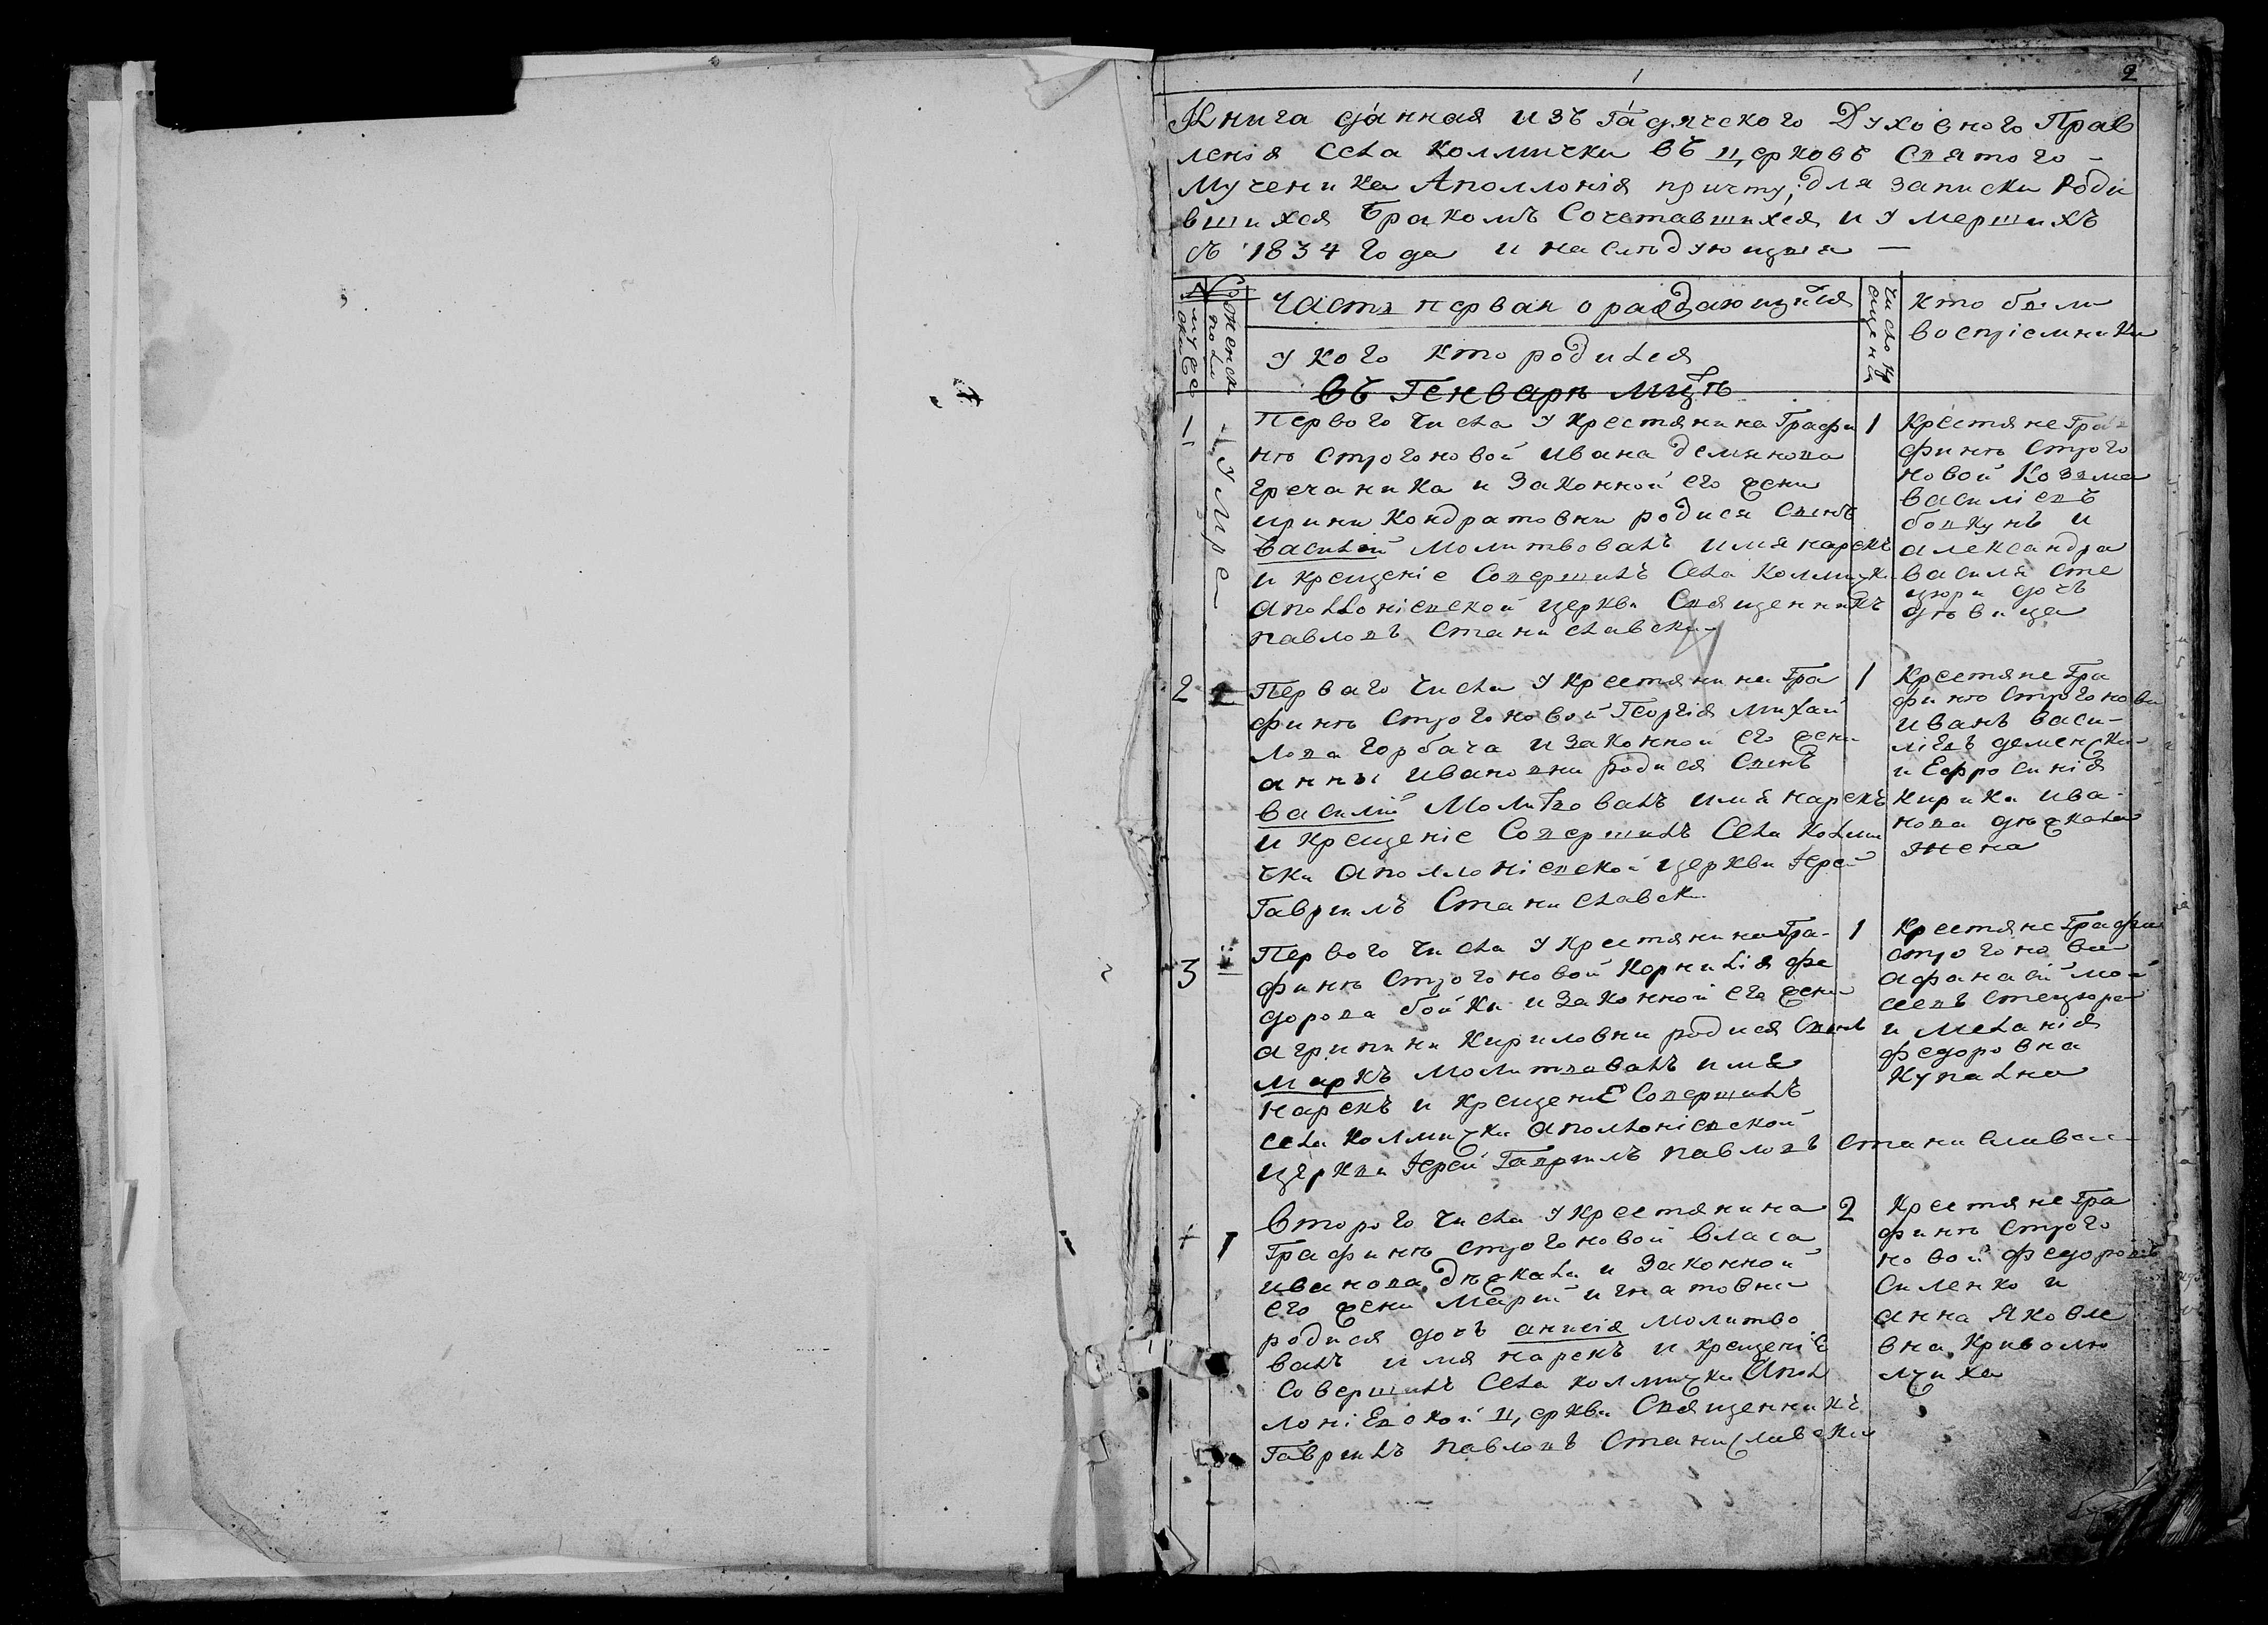 1
2
Книга данная изъ Гадяческого Духовного Прав
ленія села Коммички въ церковь Святого
Мученика Аполлонія причту, для записки роди
вшихся бракомъ сочетавшихся и умершихъ
съ 1834 года и наслѣдующия —
Часть первая о раждающихся
у кого кто родился
въ Генварѣ мцѣ
число кр
ещения
кто были
воспріемники
1
умре
Первого числа у крестянина Графи
нѣ Строгоновой Ивана Демянова
Гречаника и законной его жени
Ирини Кондратовни родися сынъ
Василій молитвовалъ имя нарекъ
и крещеніе совершилъ села Коммичк
Аполлоніевской церкви священникъ
Павловъ Станиславски
1
Крестяне Гра
финѣ Строго
новой Козма
Василіевъ
и
Александра
Василя Сте
цюри дочъ
дѣвица
2
Перваго числа у крестянина Гра
финѣ Строгоновой Георгія Михай
лова Горбача и законной его жени
Анны Ивановни родися сынъ
Василій молитвовалъ имя нарекъ
и крещеніе совершилъ села Комми
чки Аполлоніевской церкви Іерей
Гавриилъ Станиславски
1
Крестяне Гра
финѣ Строгонови
Иванъ Васи-
ліевъ
и Ефросинія
Кирика Ива-
нова
жена
3
Первого числа у крестянина Гра-
финѣ Строгоновой Корнилія Фе
дорова Бойка и законной его жени
Агрипини Кириловни родися сынъ
Маркъ молитвовалъ имя
нарекъ и крещениЕ совершилъ
села Коммички Аполлоніевской
церкви Іерей Гавриилъ Павловъ Станиславски
1
Крестяне Графи
Строгонови
Афанасій Мой
сеевъ Стецюра
и Меланія
Федоровна
Купална
1
Второго числа у крестянина
Графинѣ Строгоновой Власа
Иванова Дѣжкала и законной
его жени Маріи Игнатовни
родися дочъ Анисія молитво
валъ имя нарекъ и крещеніЕ
совершилъ села Коммички Апол
лоніЕвской церкви священникъ
Гавриилъ Павловъ Станиславски
2
Крестяне Гра
финѣ Строго
новой Федоровъ
Силенко и
Анна Яковле
вна